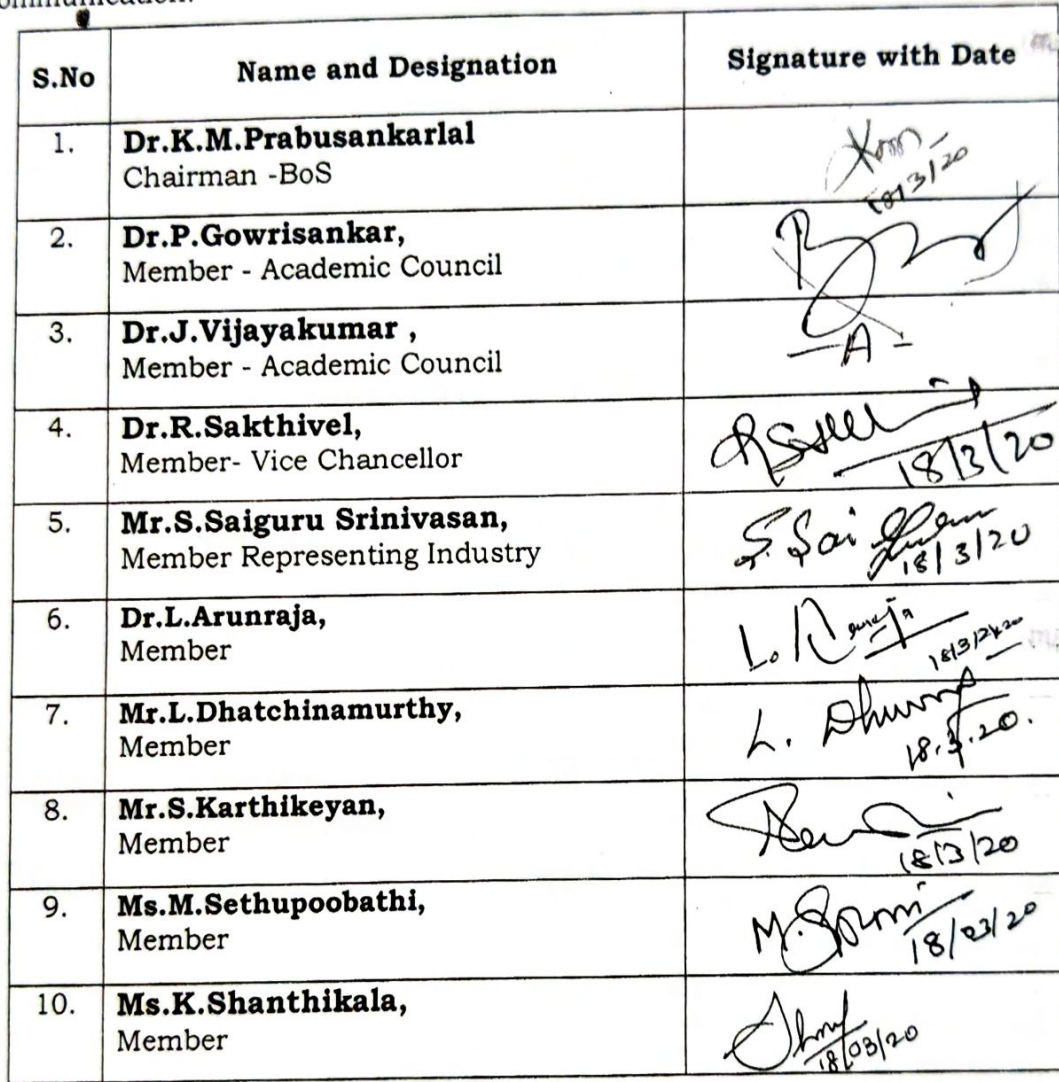 S.No Name and Designation Signature with Date
1. Dr.K.M.Prabusankarlal
Chairman -BoS
18/3/20
2. Dr.P.Gowrisankar,
Member - Academic Council
3. Dr.J.Vijayakumar ,
Member - Academic Council
-A-
4. Dr.R.Sakthivel,
Member- Vice Chancellor
18/3/20
5. Mr.S.Saiguru Srinivasan,
Member Representing Industry
S. Sai
18/3/20
6. Dr.L.Arunraja,
Member
L.
18/3/2020
7. Mr.L.Dhatchinamurthy,
Member
L.
18.3.20.
8. Mr.S.Karthikeyan,
Member
18/3/20
9. Ms.M.Sethupoobathi,
Member
M.
18/03/20
10. Ms.K.Shanthikala,
Member
18/03/20